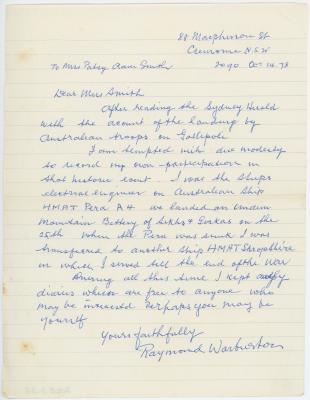 88 Macpherson St
Cremorne N.S.W
To Mrs Patsy Adam Smith 2090 Oc 14. 78
Dear Mrs Smith
After reading the Sydney Herald
with the account of the landing by
Australian troops on Gallipoli
I am tempted with due modesty
to record my own participation in
that historic event - I was the ships
electrical engineer on Australian Ship
HMAT Pera A4 we landed an Indian
Mountain Battery of Sikhs & Gorkas on the
25th When the Pera was sunk I was
transferred to another ship HMAT Shropshire
in which I served till the end of the War
During all this time I kept
diaries which are free to anyone who
may be interested Perhaps you may be
yourself
Yours faithfully
Raymond Warburton